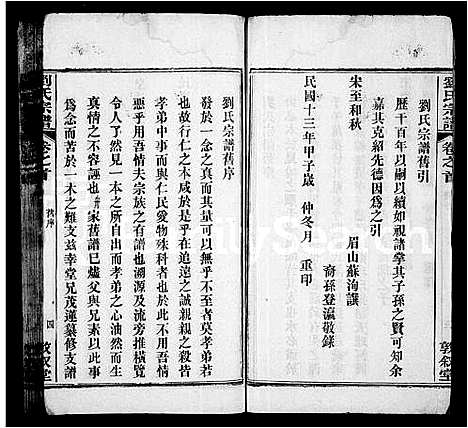 劉氏宗譜
卷之首
敦叙堂
劉氏宗譜舊引
歷千百年以嗣以續如視諸掌其子孫之賢可知余
嘉其克紹先德因爲之引
宋至和秋　眉山蘇洵譔
裔孫登瀛敬錄
民國十三年甲子歲　仲冬月　重印
劉氏宗譜舊序
發於一念之真而其量可以周乎人而不至者莫孝弟若
故本此行仁之本同處乎天地之間
孝弟中事而與仁民愛物殊科者也於此不用吾情
惡乎用吾情夫宗族之有譜也溯源及流旁推橫覽
令人了然見一本之所自出而孝弟之心油然而生
真情之不容誣也家舊譜已燬父與兄素以此事
爲念而苦於一木之難支茲幸堂兄茂蓮纂修支譜
劉氏宗譜
卷之首
舊序
四
敦叙堂